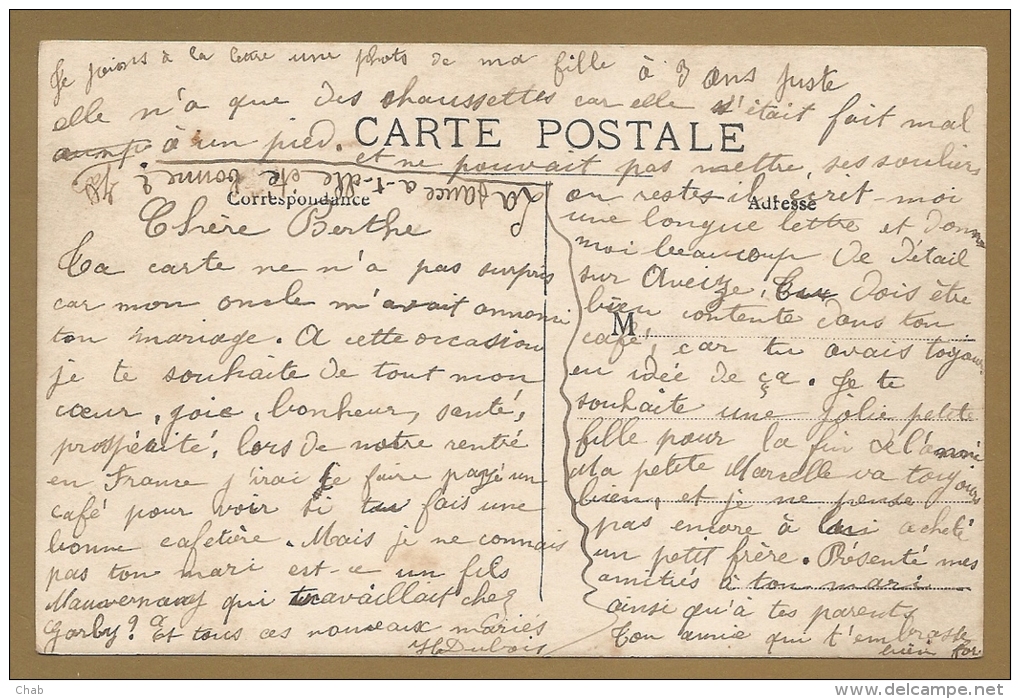 Je joins à la lettre une photo de ma fille à 3 ans juste
elle n'a que des chaussettes car elle s'était fait mal
à un pied. CARTE POSTALE
et ne pouvait pas mettre ses souliers
La danse a-t-elle été bonne ?
Correspondance
Adresse
Chère Berthe
Ta carte ne n'a pas surpris
car mon oncle m'avait annoncé
ton mariage. A cette occasion
je te souhaite de tout mon
cœur, joie, bonheur, santé,
prospérité, lors de notre rentré
en France j'irai te faire payé un
café pour voir si tu fais une
bonne cafetière. Mais je ne connais
pas ton mari est-ce un fils
qui travaillait chez
Gorby ? Et tous ces nouveaux mariés
où restes il, écrit-moi
une longue lettre et donne
moi beaucoup de détail
sur Aveize. Tu dois être
bien contente dans ton
M
café, car tu avais toujour
en idée de ça. Je te
souhaite une jolie petite
fille pour la fin de l'année
Ma petite Marcelle va toujours
bien, et je ne pense
pas encore à lui acheté
un petit frère. Présenté mes
amitiés à ton mari
ainsi qu'à tes parents
Ton amie qui t'embrasse
bien for
Dubois
Chab
www.delcampe.net